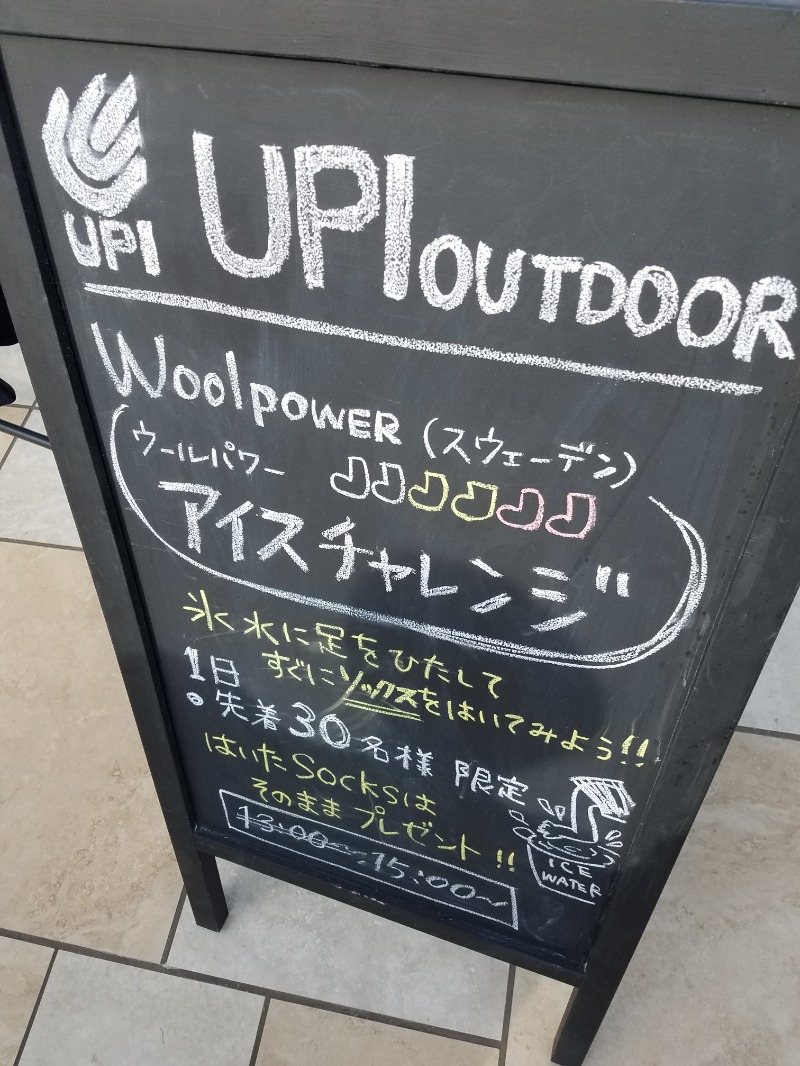 UPI
UPI OUTDOOR
WoolpoWER (スウェーデン)
ウールパワー
アイスチャレンジ
氷水に足をひたして
すぐにソックスをはいてみよう!!
1日
。先着30名様 限定
はいたSocksは
そのままプレゼント!!
13:00〜15:00〜
ICE
WATER